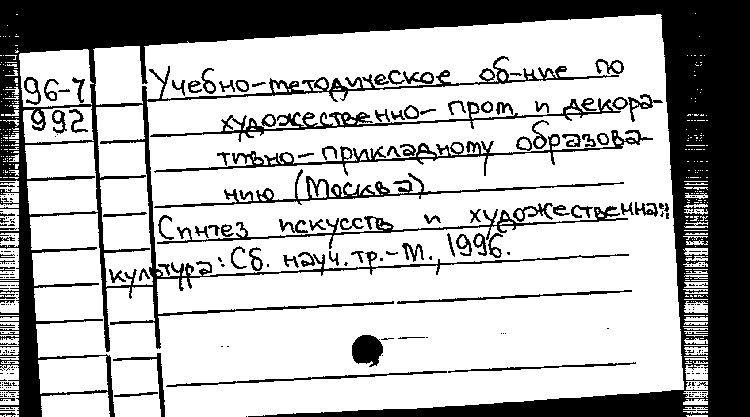 96-7
992
Учебно-методическое об-ние по
художественно-пром. и декора-
тивно-прикладному образова-
нию (Москва)
Синтез искусств и художественная
культура: Сб. науч. тр.-М., 1996.